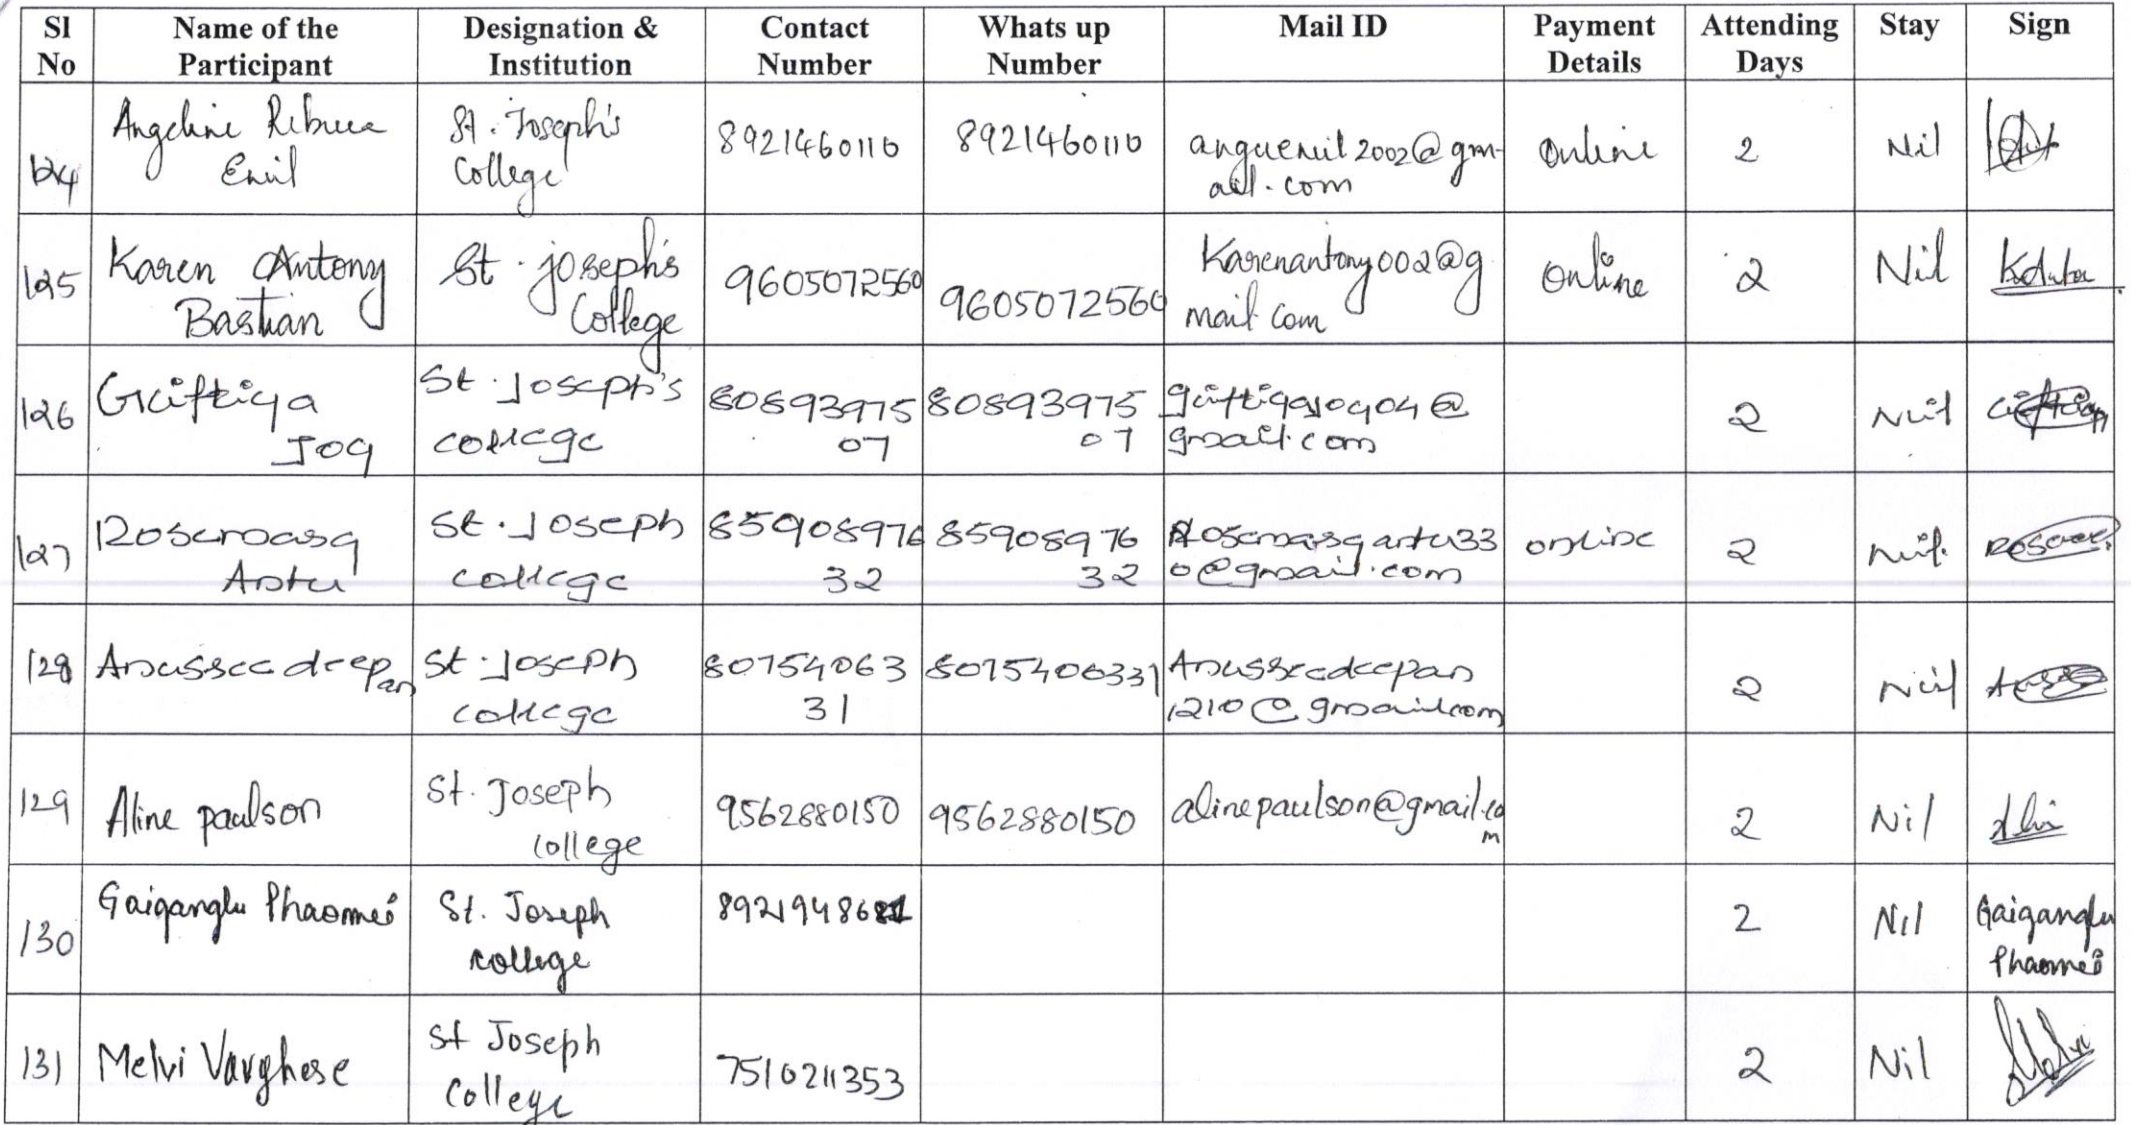 Sl No Name of the Participant Designation & Institution Contact Number Whats up Number Mail ID Payment Details Attending Days Stay Sign
124 Angeline Emil St. Joseph's College 8921460110 8921460110 2002@gmail.com Online 2 Nil
125 Karen Antony Bastian St. joseph's College 9605072560 9605072560 Karenantony002@gmail.com Online 2 Nil
126 Giftiya Joy St. Joseph's college 8089397507 8089397507 @gmail.com 2 Nil
127 Rosemary Antu St. Joseph college 8590897632 8590897632 online 2 Nil
128 Anussree deepan St. Joseph college 8075406331 8075406331 Anussreedeepan1210@gmail.com 2 Nil
129 Aline paulson St. Joseph College 9562880150 9562880150 alinepaulson@gmail.com 2 Nil
130 Gaiganglu Phaomei St. Joseph college 2 Nil Gaiganglu Phaomei
131 Melvi Varghese St Joseph College 7510211353 2 Nil